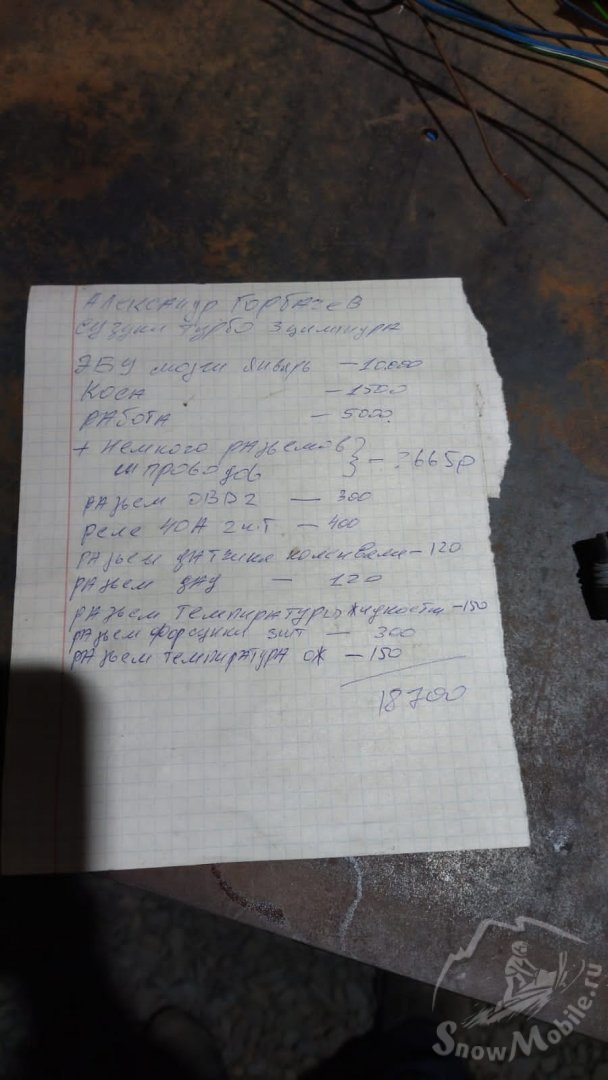 Александр Горбачев
Сузуки турбо 3 цилиндра
ЭБУ мозги январь — 10000
Коса — 1500
Работа — 5000
+ немного разъемов
и проводов
} — 665р
разъем OBD2 — 300
реле 40А 2шт. — 400
разъем датчика коленвала — 120
разъем ДАД — 120
разъем температуры жидкости — 150
разъем форсунки 3шт — 300
разъем температура ОЖ — 150
18700
SnowMobile.ru